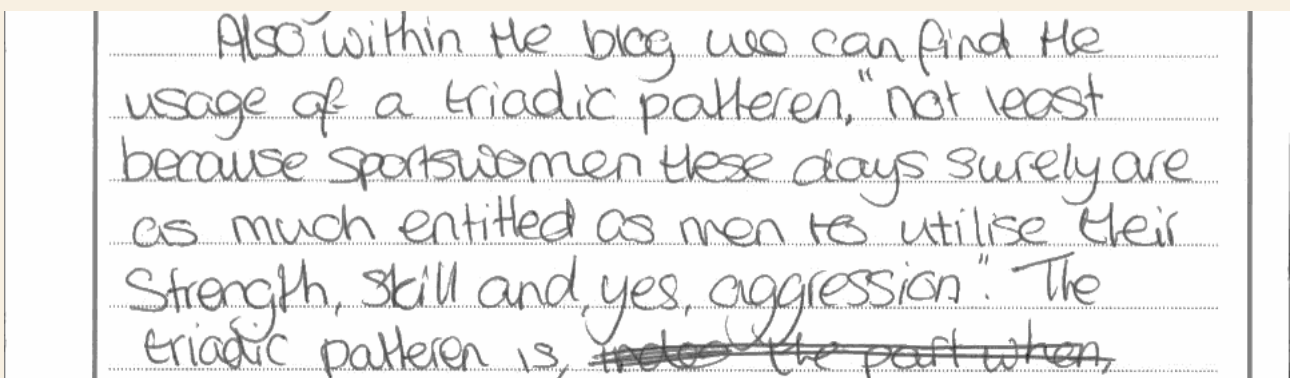 Also within the blog we can find the
usage of a triadic patteren, "not least
because sportswomen these days surely are
as much entitled as men to utilise their
strength, skill and, yes, aggression". The
triadic patteren is, the part when,